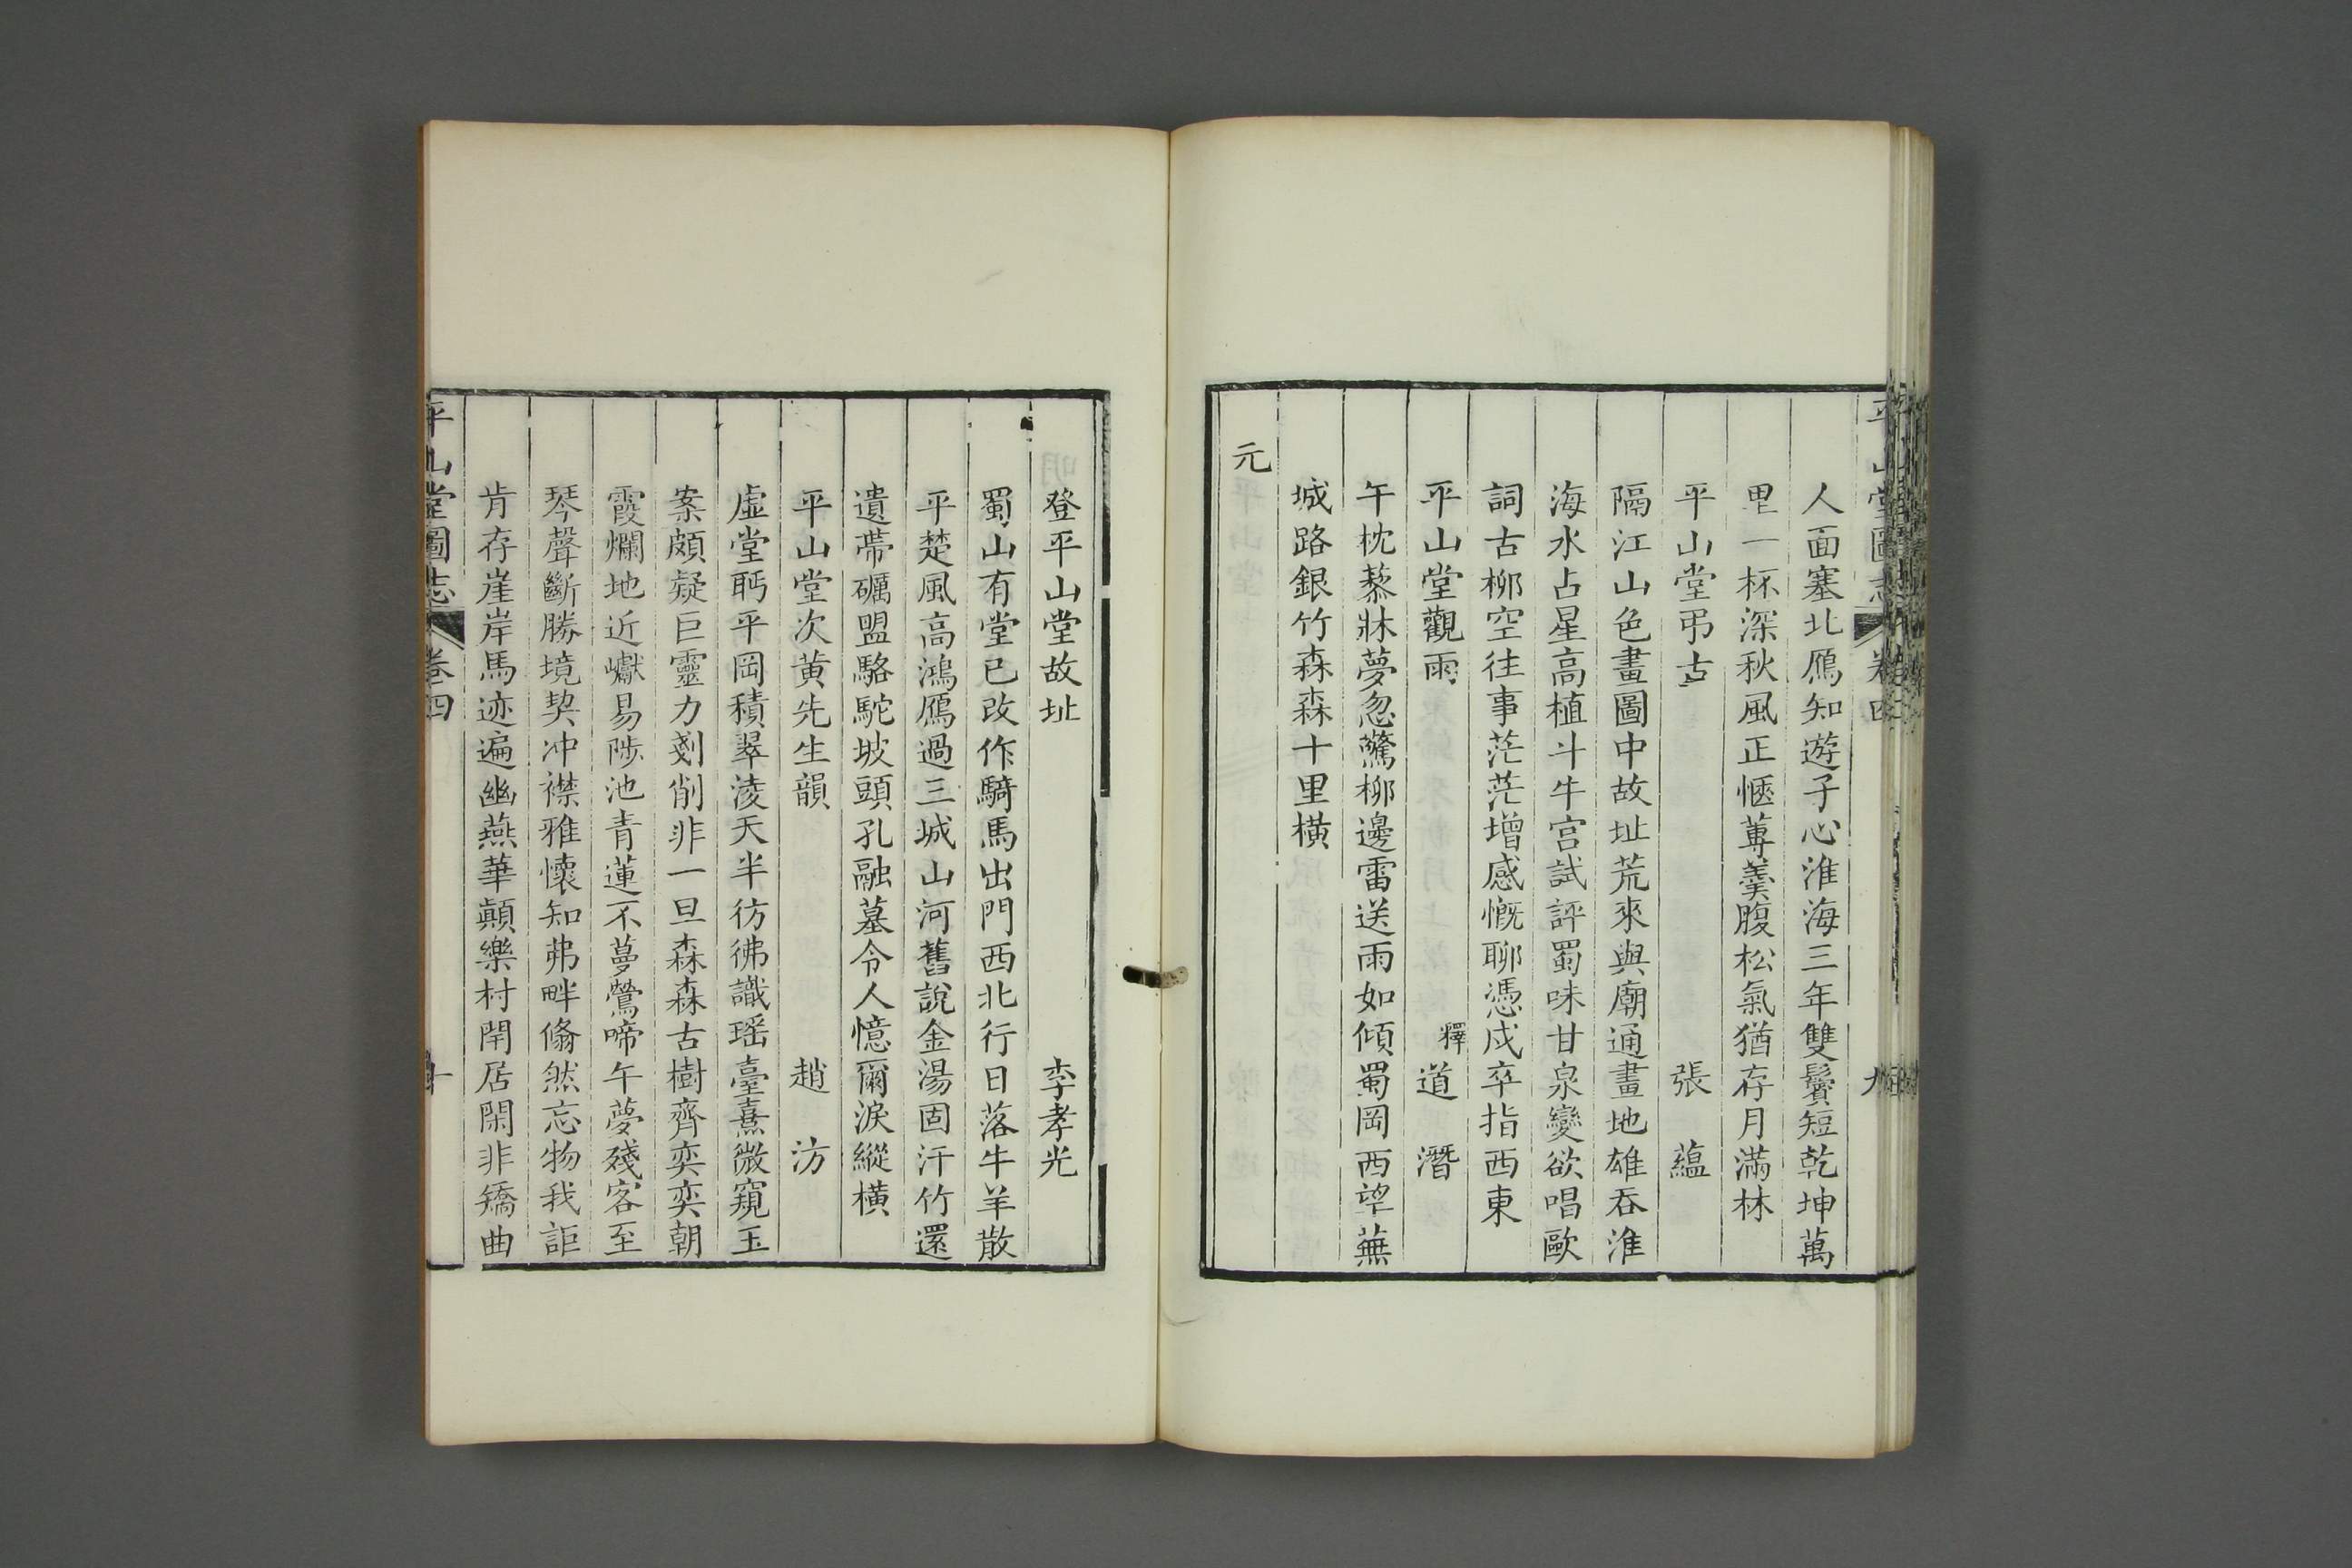 平山堂圖志 卷四 九
人面塞北鴈知遊子心淮海三年雙鬢短乾坤萬
里一杯深秋風正愜蓴羹腹松氣猶存月滿林
平山堂弔古 張 蘊
隔江山色畫圖中故址荒來與廟通畫地雄吞淮
海水占星高植斗牛宮試評蜀味甘泉變欲唱歐
詞古栁空往事茫茫增感慨聊憑戍卒指西東
平山堂觀雨 釋道 潛
午枕藜牀夢忽驚栁邊雷送雨如傾蜀岡西望蕪
城路銀竹森森十里橫
元
登平山堂故址 李孝光
蜀山有堂已改作騎馬出門西北行日落牛羊散
平楚風高鴻鴈過三城山河舊說金湯固汗竹還
遺帶礪盟駱駝坡頭孔融墓令人憶爾淚縱橫
平山堂次黃先生韻 趙 汸
虛堂眄平岡積翠淩天半彷彿識瑶臺熹微窺玉
案頗疑巨靈力剗削非一旦森森古樹齊奕奕朝
霞爛地近巘易陟池青蓮不蔓鶯啼午夢殘客至
琴聲斷勝境契冲襟雅懷知弗畔翛然忘物我詎
肯存崖岸馬迹遍幽燕華顛樂村閈居閑非矯曲
平山堂圖志 卷四 十